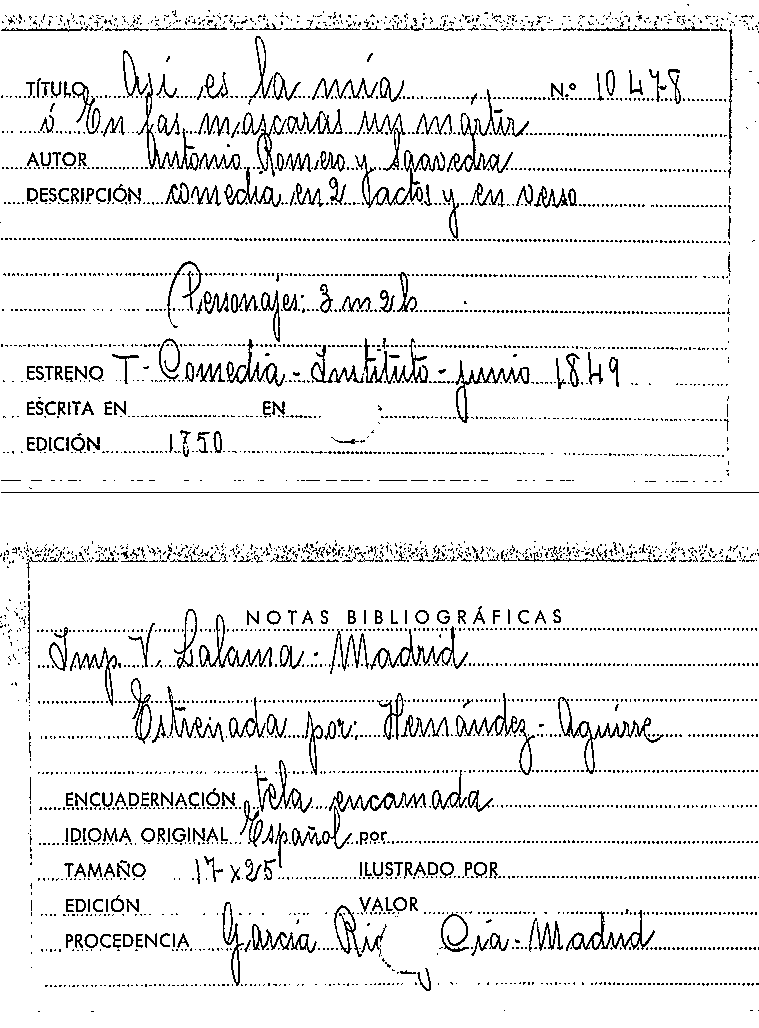 TÍTULO Así es la mía N.º 10478
ó En las máscaras un mártir
AUTOR Antonio Romero y Saavedra
DESCRIPCIÓN comedia en 2 actos y en verso
Personajes: 3 m 2 h
ESTRENO T- Comedia - Instituto - junio 1849
ESCRITA EN EN
EDICIÓN 1850
NOTAS BIBLIOGRÁFICAS
Imp. V. Lalama - Madrid
Estrenada por: Hernández - Aguirre
ENCUADERNACIÓN tela encarnada
IDIOMA ORIGINAL Español por
TAMAÑO 17 x 25 ILUSTRADO POR
EDICIÓN VALOR
PROCEDENCIA García Rico Cía - Madrid